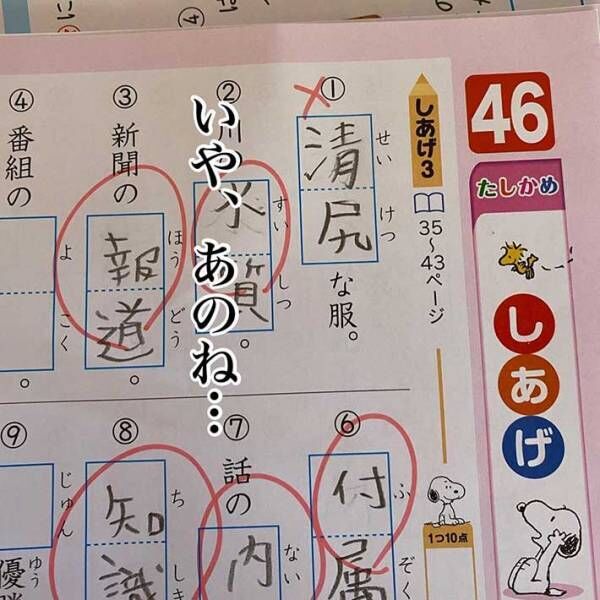 46
たしかめ
しあげ
しあげ3
35〜43ページ
1つ10点
①
清尻な服。
せいけつ
②
川
水質。
すいしつ
③
新聞の報道。
ほうどう
④
番組の
よこく
。
いや、あのね…
⑥
付属
ふぞく
⑦
話の内
ない
⑧
知識
ちしき
⑨
じゅん
優勝
ゆう